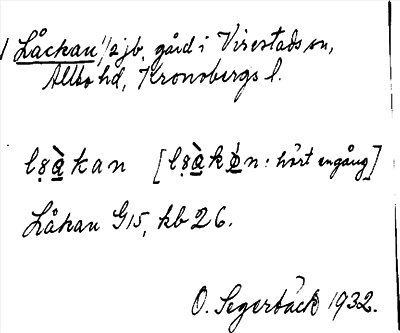 Låckan 1/2 jb. gård i Virestads sn,
Allbo hd, Kronobergs l.
lsàkan [lsàkøn: hört engång]
Låkan G15, kb 26.
O. Segerbäck 1932.